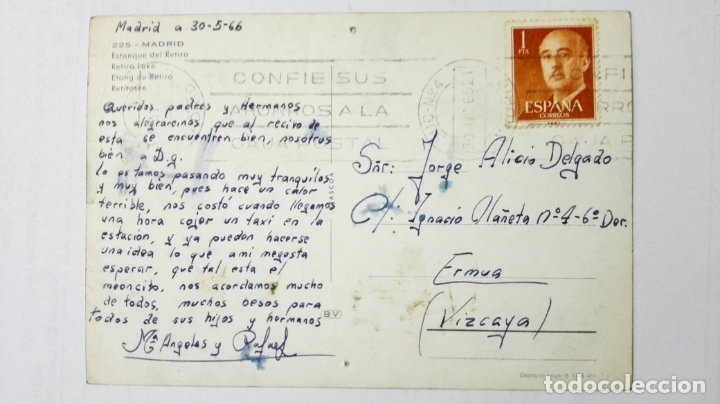 Madrid a 30-5-66
225 - MADRID
Estanque del Retiro
Retiro Lake
Etang du Retiro
Retirosee
CONFIE SUS
AHORROS A LA
Queridos padres y Hermanos
nos alegraremos que al recivo de
esta se encuentren bien, nosotros
bien a D.g.
lo estamos pasando muy tranquilos
y muy bien, pues hace un calor
terrible, nos costó cuando llegamos
una hora cojer un taxi en la
estación, y ya pueden hacerse
una idea lo que ami megusta
esperar, que tal esta el
meoncito, nos acordamos mucho
de todos, muchos besos para
todos de sus hijos y hermanos
Mª Angeles y Rafael
1
PTA
ESPAÑA
CORREOS
Sñr: Jorge Alicio Delgado
C/: Ignacio Olañeta Nº 4-6º Der.
Ermua
(Vizcaya)
B.V
todocoleccion.net